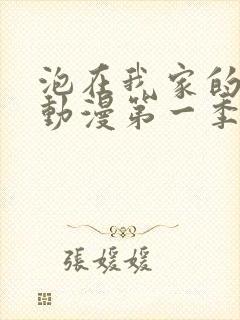 泡在我家的
動漫第一季
張媛媛